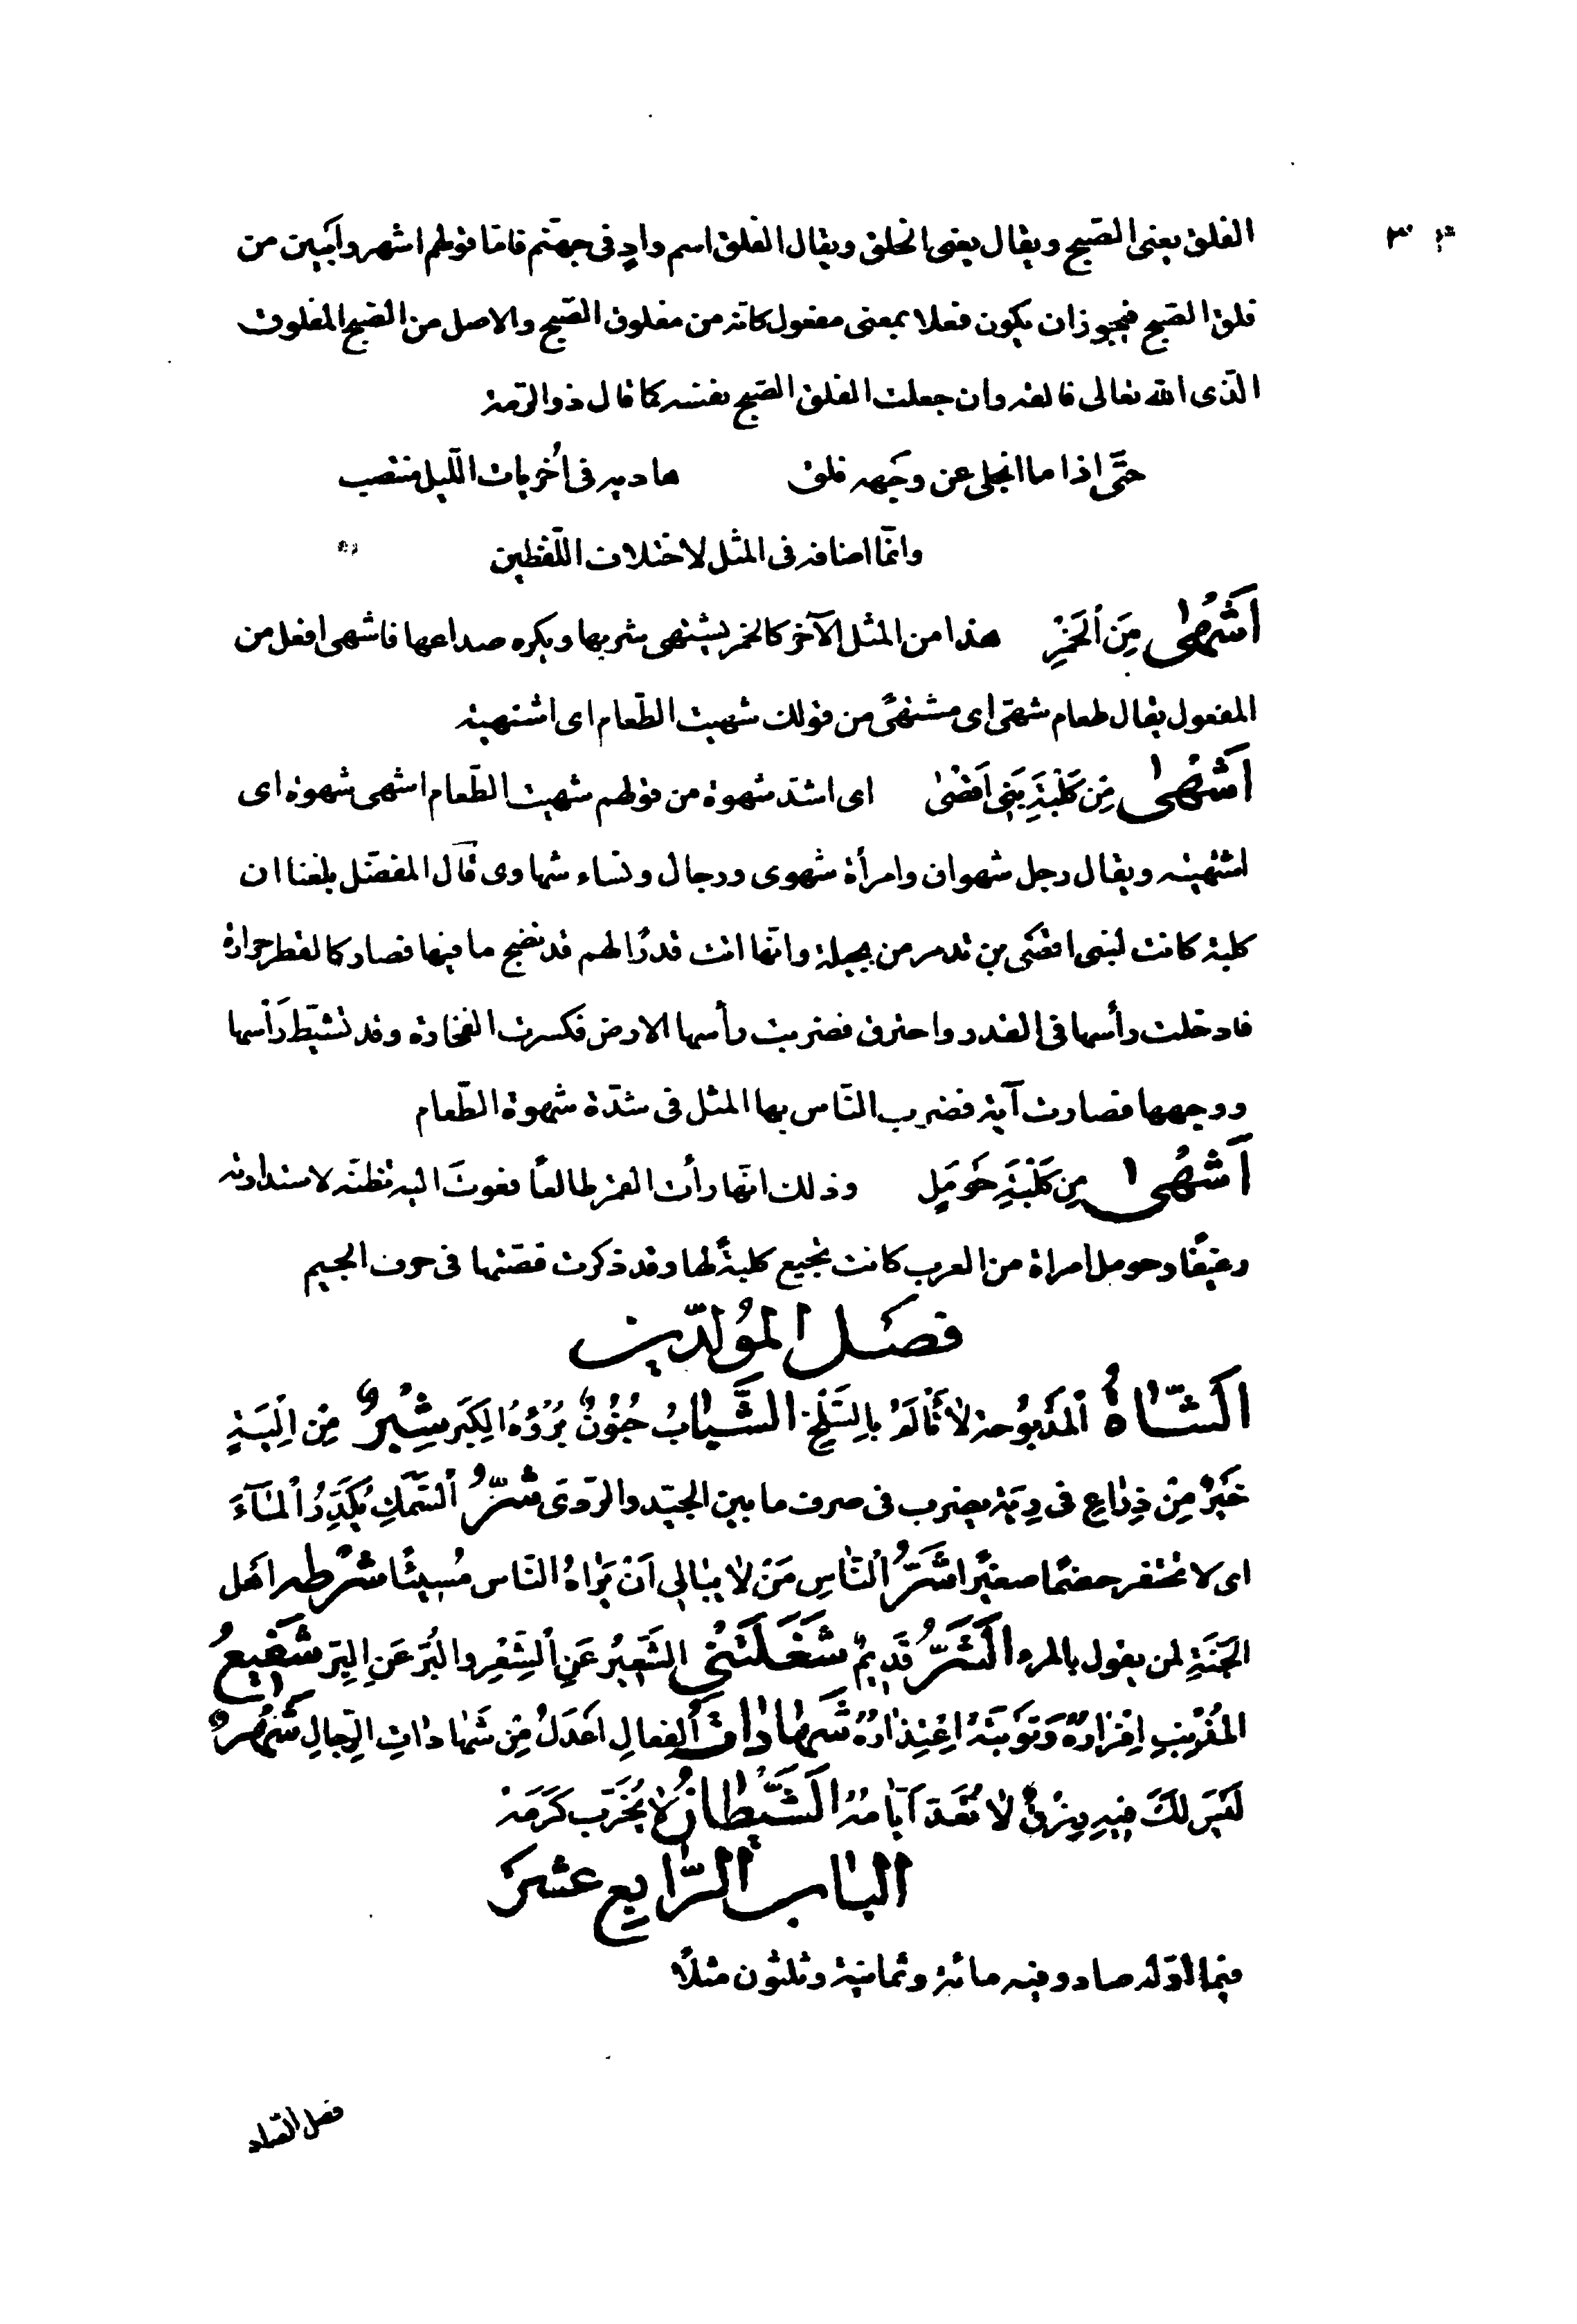 الفلق يعنى الصّبح ويقال يعنى الخلق ويقال الفلق اسم وادٍ فى جهنّم فامّا قولهم اشهر وأبين من
فلق الصّبح فيجوز ان يكون فعلا بمعنى مفعول كانّه من مفلوق الصّبح والاصل من الصّبح المفلوق
الّذى الله تعالى فالقه وان جعلت الفلق الصّبح نفسه كما قال ذو الرّمّة
حتَّى اذا ما انجلى عن وجهه فلق هاديه فى اُخريات اللّيل منتصب
وانّما اضافه فى المثل لاختلاف اللّفظين
اَشْهٰى مِنَ اُلْخَمْرِ هذا من المثل الآخر كالخمر يشتهى شربها ويكره صداعها فاشهى افعل من
المفعول يقال طعام شهىّ اى مشتهىً من قولك شهيت الطّعام اى اشتهيته
اَشْهٰى مِن كَلْبَةِ بَنِى اَفْضٰى اى اشدّ شهوة من قولهم شهيت الطّعام اشهى شهوة اى
اشتهيته ويقال رجل شهوان وامرأة شهوى ورجال ونساء شهاوى قال المفضّل بلغنا ان
كلبة كانت لبنى افصى بن تدمر من بجيلة وانّها اتت قدرًا لهم قد نضج ما فيها فصار كالقطر حرارة
فادخلت رأسها فى القدر واحترق فضربت رأسها الارض فكسرت الفخارة وقد تشيّط رأسها
ووجهها فصارت آية فضرب النّاس بها المثل فى شدّة شهوة الطّعام
اَشْهٰى مِن كَلْبَةِ حَوْمَلٍ وذلك انّها رأت القمر طالعًا فعوت اليه تظنّه لاستدارته
رغيفًا وحومل امراة من العرب كانت تجيع كلبةً لها وقد ذكرت قصّتها فى حرف الجيم
فصل المُولدّين
اَلشّاةُ اُلْمَذْبُوحة لا تَأْلَمُ بِالسَّلْخِ الشَّبٰابُ جُنُونٌ بُرْؤُهُ اَلكِبَر شِبْرٌ مِنْ اِلْيَةٍ
خَيْرٌ مِنْ ذِرٰاعٍ فى رِيَةٍ يضرب فى صرف ما بين الجيّد والردّى شَرُّ اُلسَّمَكِ يُكَدِّرُ اُلْمٰآءَ
اى لا تحتقر خصمًا صغيرًا شَرُّ اُلنّٰاسِ مَنْ لاٰ يبٰالِى اَنْ يَرٰاهُ النّاس مُسِيئًا شرْطه اهْل
الْجَنَّةِ لمن يقول بالمرد الشَّرُّ قَدِيمٌ شَغَلَتْنِى الشَّعِيُرُ عَنِ اُلشِّعْرِ والبُرّ عَنِ البِرّ شَفِيعُ
المُذْنِبِ اِقْرٰارهُ وَتَوْبَتُهُ اِعْتِذٰارُهُ شَهٰادٰاتُ اُلفِعالِ اعْدَلُ مِنْ شَهٰادٰاتِ الرِّجالِ شَهْرٌ
لَيْسَ لَكَ فِيهِ رِزْقٌ لاٰ تُعَدّ اَيّٰامَهُ الشَّيْطٰانُ لاٰ يُخَرِّب كَرْمَهُ
البٰاب الرّٰابع عشر
فيما اوّله صاد وفيه مائة وثمانية وثلثون مثلاً
فصل الصّاد